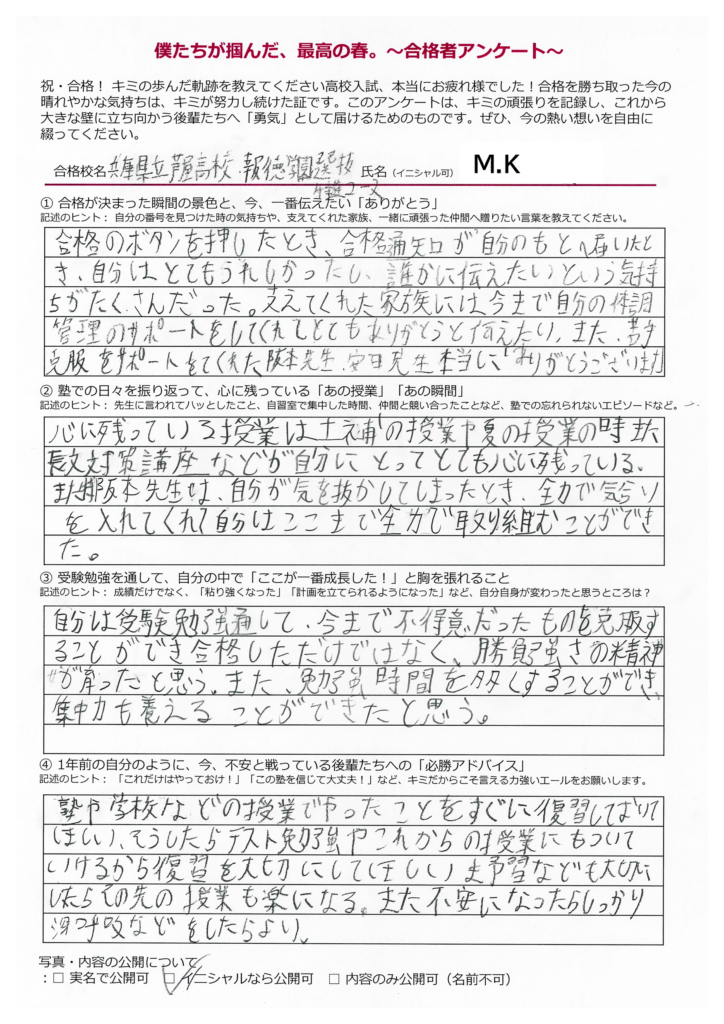 僕たちが掴んだ、最高の春。～合格者アンケート～
祝・合格！ キミの歩んだ軌跡を教えてください高校入試、本当にお疲れ様でした！合格を勝ち取った今の
晴れやかな気持ちは、キミが努力し続けた証です。このアンケートは、キミの頑張りを記録し、これから
大きな壁に立ち向かう後輩たちへ「勇気」として届けるためのものです。ぜひ、今の熱い想いを自由に
綴ってください。
合格校名 兵庫県立芦屋高校・報徳学園選抜 氏名（イニシャル可） M.K
特進コース
① 合格が決まった瞬間の景色と、今、一番伝えたい「ありがとう」
記述のヒント： 自分の番号を見つけた時の気持ちや、支えてくれた家族、一緒に頑張った仲間へ贈りたい言葉を教えてください。
合格のボタンを押したとき、合格通知が自分のもとへ届いたと
き、自分はとてもうれしかったし、誰かに伝えたいという気持
ちがたくさんだった。支えてくれた家族には今まで自分の体調
管理のサポートをしてくれてとてもありがとうと伝えたい。また、苦手
克服をサポートをてくれた阪本先生、安田先生本当に「ありがとうございます」
② 塾での日々を振り返って、心に残っている「あの授業」「あの瞬間」
記述のヒント： 先生に言われてハッとしたこと、自習室で集中した時間、仲間と競い合ったことなど、塾での忘れられないエピソードなど。
心に残っている授業は土補の授業や夏の授業の時また
長文対策講座などが自分にとってとても心に残っている。
また阪本先生は、自分が気を抜かしてしまったとき、全力で気合い
を入れてくれて自分はここまで全力で取り組むことができ
た。
③ 受験勉強を通して、自分の中で「ここが一番成長した！」と胸を張れること
記述のヒント： 成績だけでなく、「粘り強くなった」「計画を立てられるようになった」など、自分自身が変わったと思うところは？
自分は受験勉強通して、今まで不得意だったものを克服す
ることができ合格しただけではなく、勝負強さの精神
が育ったと思う。また、勉強時間を多くすることができ、
集中力も養えることができたと思う。
④ 1年前の自分のように、今、不安と戦っている後輩たちへの「必勝アドバイス」
記述のヒント： 「これだけはやっておけ！」「この塾を信じて大丈夫！」など、キミだからこそ言える力強いエールをお願いします。
塾や学校などの授業でやったことをすぐに復習しておいて
ほしい、そうしたらテスト勉強やこれからの授業にもついて
いけるから復習を大切にしてほしい。ま予習なども大切に
したらその先の授業も楽になる。また不安になったらしっかり
深呼吸などをしたらよい。
写真・内容の公開について
：☐ 実名で公開可 ☑ イニシャルなら公開可 ☐ 内容のみ公開可（名前不可）